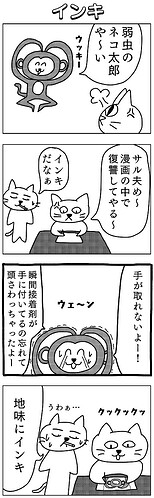 インキ
弱虫の
ネコ太郎
や〜い
ウッキー
サル夫め〜
漫画の中で
復讐してやる〜
インキ
だなぁ
手が取れないよー!
ウェ〜ン
瞬間接着剤が
手に付いてるの忘れて
頭さわっちゃったよー!
クックックッ
うわぁ…
地味にインキ